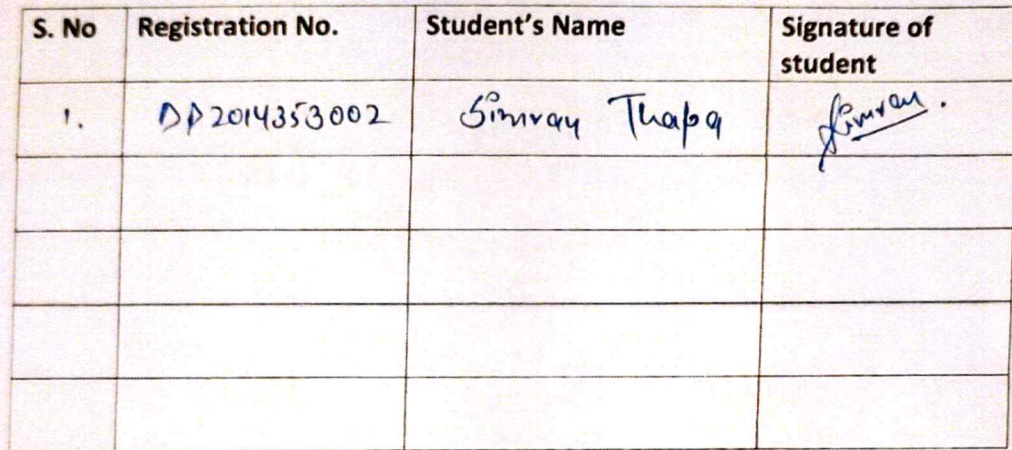 S. No Registration No. Student's Name Signature of student
1. DP2014353002 Simran Thapa Simran.